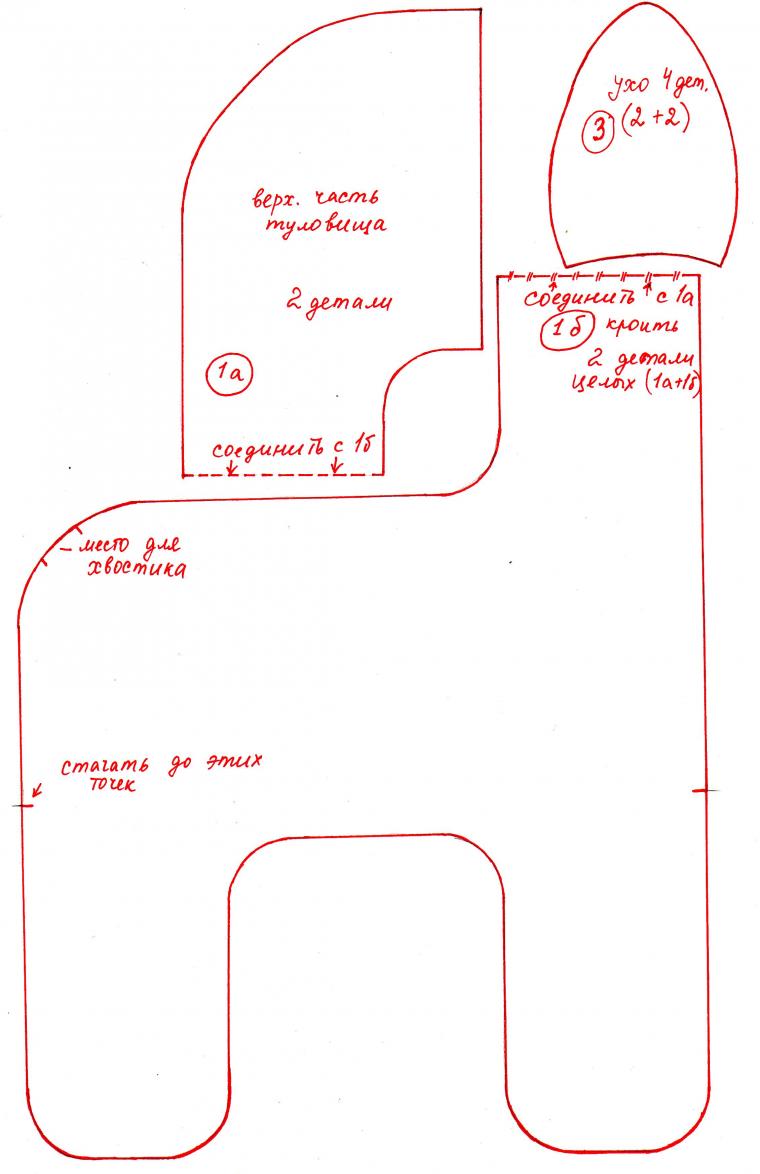 верх. часть
туловища
2 детали
1а
соединить с 1б
ухо 4 дет.
3 (2+2)
соединить с 1а
1б кроить
2 детали
целых (1а+1б)
место для
хвостика
стачать до этих
точек